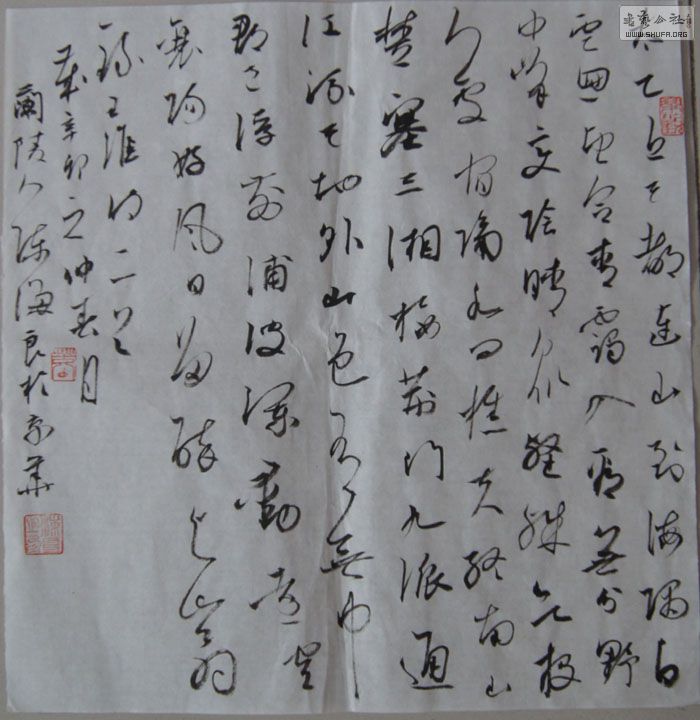 书艺公社
WWW.SHUFA.ORG
太乙近天都連山到海隅白
雲回望合青靄入看無分野
中峰變陰晴眾壑殊欲投
人處宿隔水問樵夫終南山
楚塞三湘接荊門九派通
江流天地外山色有無中
郡邑浮前浦波瀾動遠空
襄陽好風日留醉與山翁
錄王維詩二首
歲辛卯之仲春月
蘭陵人陳海良於京華